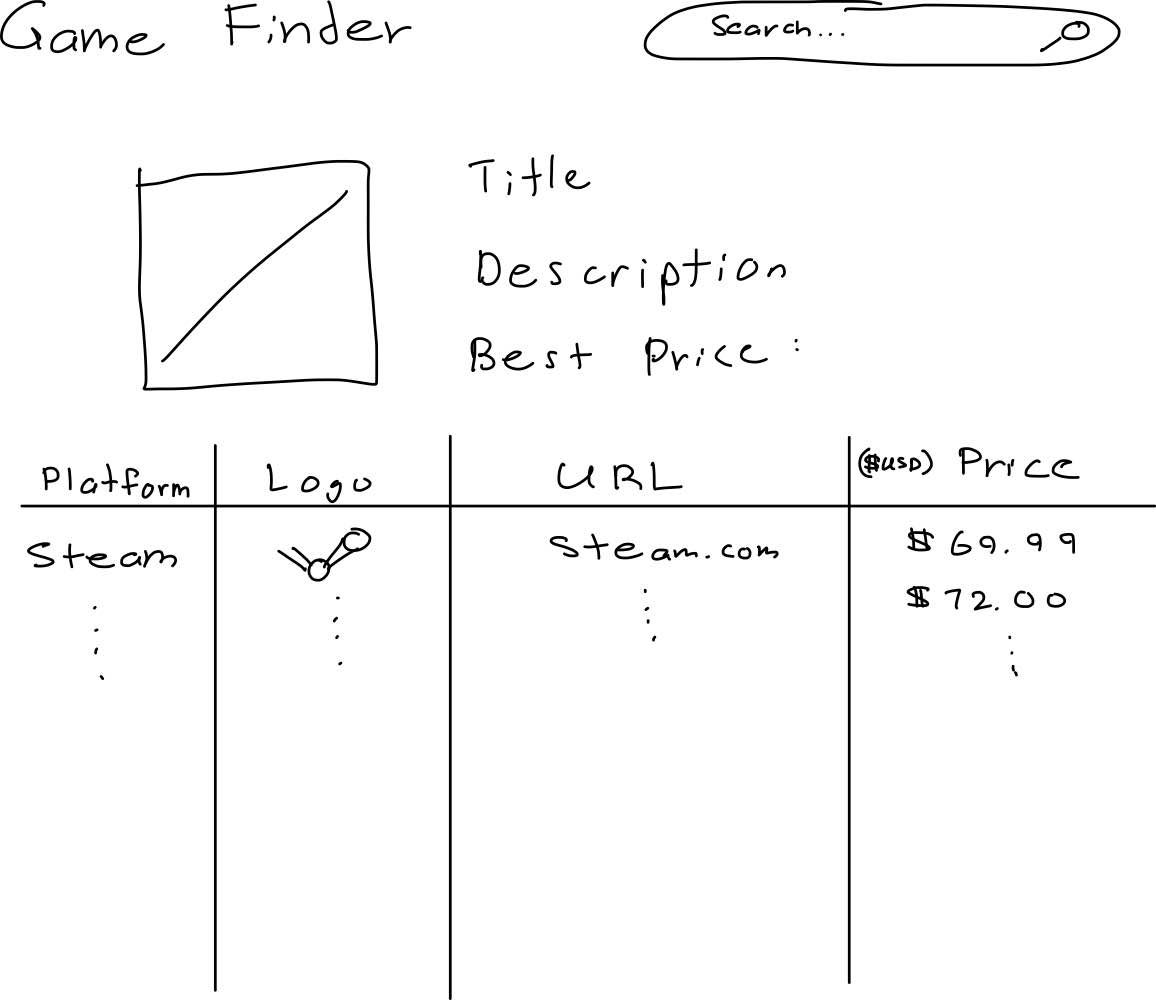 Game Finder
Search...
Title
Description
Best Price :
Platform Logo URL ($USD) Price
Steam Steam.com $69.99
$72.00